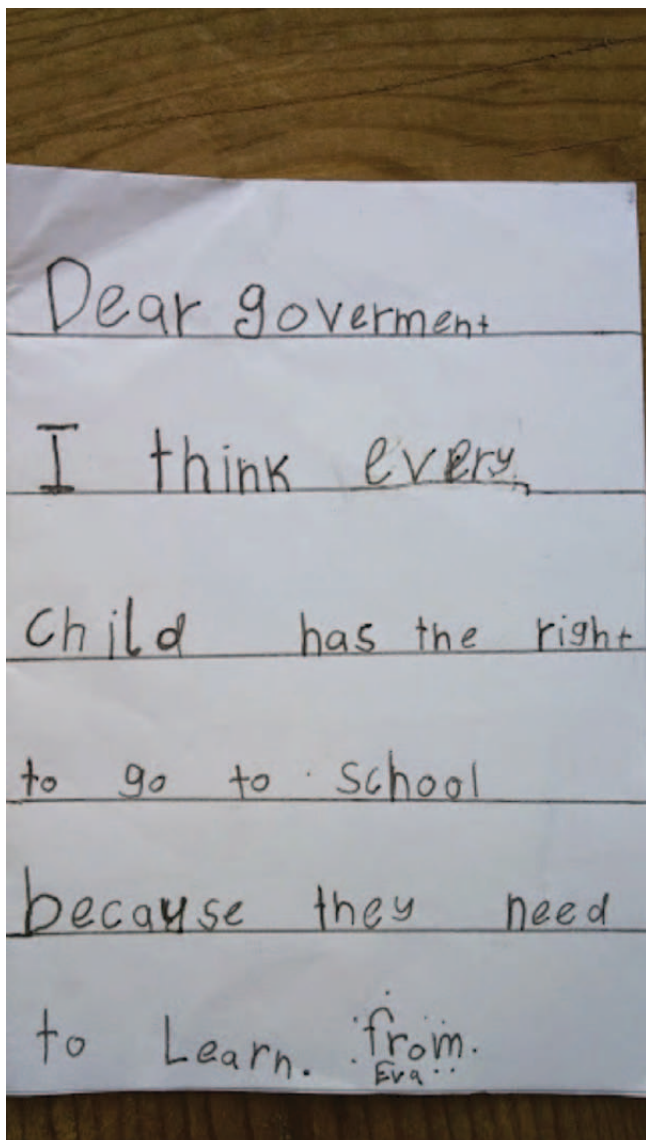 Dear goverment
I think every
Child has the right
to go to school
because they need
to Learn. from.
Eva